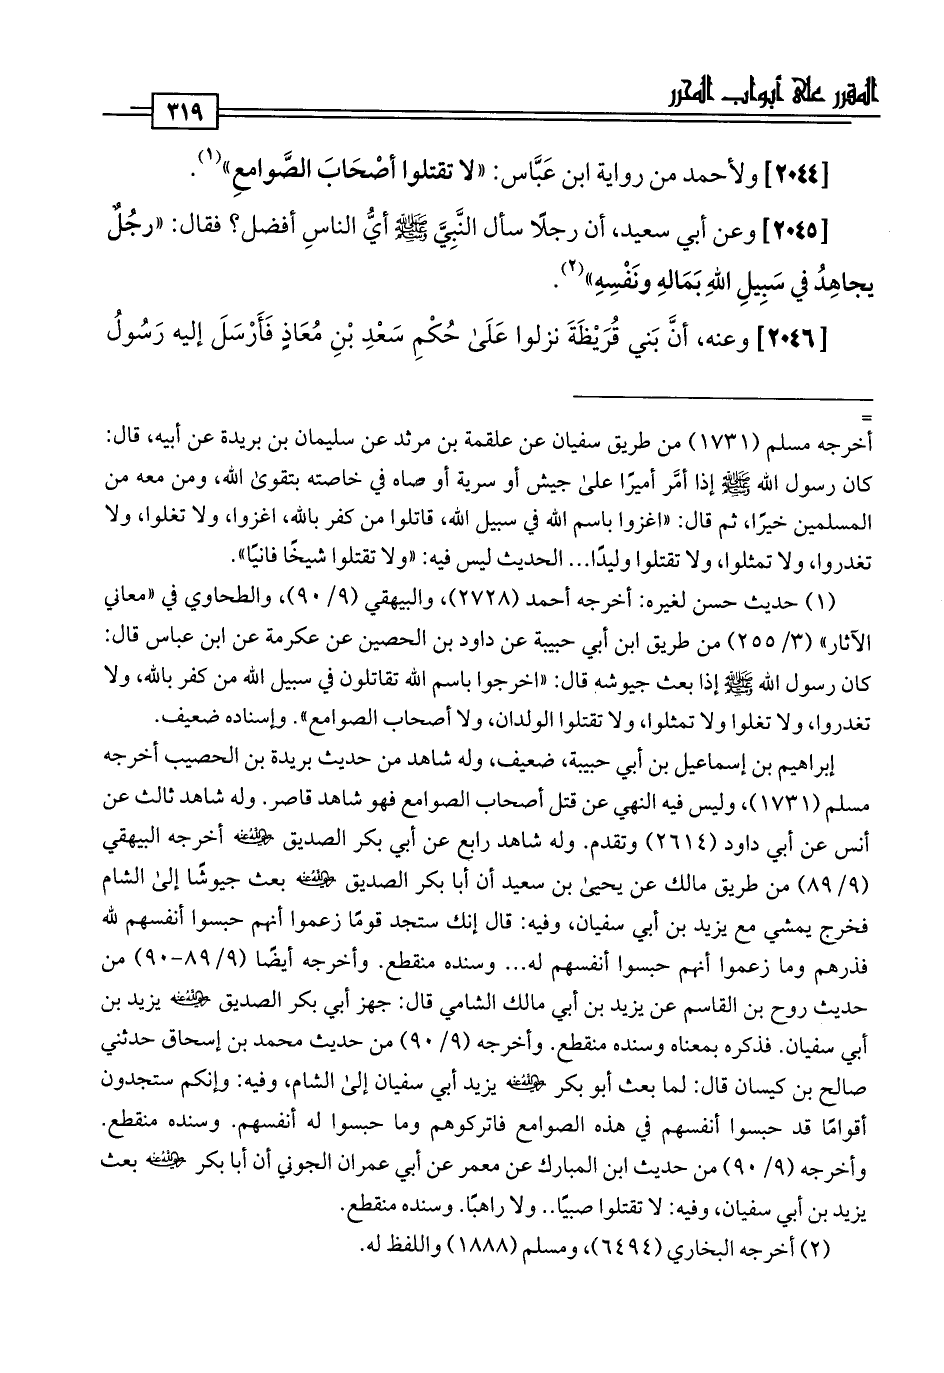 المقرر على أبواب المحرر
٣١٩
[٢٠٤٤] ولأحمد من رواية ابن عَبَّاس: «لا تقتلوا أصْحَابَ الصَّوامعِ»(١).
[٢٠٤٥] وعن أبي سعيد، أن رجلًا سأل النَّبِيَّ ﷺ أيُّ الناسِ أفضل؟ فقال: «رجُلٌ
يجاهِدُ في سَبِيلِ اللهِ بَمَالهِ ونَفْسِهِ»(٢).
[٢٠٤٦] وعنه، أنَّ بَني قُرَيْظَةَ نزلوا عَلَىٰ حُكْمِ سَعْدِ بْنِ مُعَاذٍ فَأَرْسَلَ إليه رَسُولُ
=
أخرجه مسلم (١٧٣١) من طريق سفيان عن علقمة بن مرثد عن سليمان بن بريدة عن أبيه، قال:
كان رسول الله ﷺ إذا أمَّر أميرًا علىٰ جيش أو سرية أو صاه في خاصته بتقوىٰ الله، ومن معه من
المسلمين خيرًا، ثم قال: «اغزوا باسم الله في سبيل الله، قاتلوا من كفر بالله، اغزوا، ولا تغلوا، ولا
تغدروا، ولا تمثلوا، ولا تقتلوا وليدًا... الحديث ليس فيه: «ولا تقتلوا شيخًا فانيًا».
(١) حديث حسن لغيره: أخرجه أحمد (٢٧٢٨)، والبيهقي (٩/ ٩٠)، والطحاوي في «معاني
الآثار» (٣/ ٢٥٥) من طريق ابن أبي حبيبة عن داود بن الحصين عن عكرمة عن ابن عباس قال:
كان رسول الله ﷺ إذا بعث جيوشه قال: «اخرجوا باسم الله تقاتلون في سبيل الله من كفر بالله، ولا
تغدروا، ولا تغلوا ولا تمثلوا، ولا تقتلوا الولدان، ولا أصحاب الصوامع». وإسناده ضعيف.
إبراهيم بن إسماعيل بن أبي حبيبة، ضعيف، وله شاهد من حديث بريدة بن الحصيب أخرجه
مسلم (١٧٣١)، وليس فيه النهي عن قتل أصحاب الصوامع فهو شاهد قاصر. وله شاهد ثالث عن
أنس عن أبي داود (٢٦١٤) وتقدم. وله شاهد رابع عن أبي بكر الصديق رضي الله عنه أخرجه البيهقي
(٩/ ٨٩) من طريق مالك عن يحيىٰ بن سعيد أن أبا بكر الصديق رضي الله عنه بعث جيوشًا إلىٰ الشام
فخرج يمشي مع يزيد بن أبي سفيان، وفيه: قال إنك ستجد قومًا زعموا أنهم حبسوا أنفسهم لله
فذرهم وما زعموا أنهم حبسوا أنفسهم له... وسنده منقطع. وأخرجه أيضًا (٩/ ٨٩-٩٠) من
حديث روح بن القاسم عن يزيد بن أبي مالك الشامي قال: جهز أبي بكر الصديق رضي الله عنه يزيد بن
أبي سفيان. فذكره بمعناه وسنده منقطع. وأخرجه (٩/ ٩٠) من حديث محمد بن إسحاق حدثني
صالح بن كيسان قال: لما بعث أبو بكر رضي الله عنه يزيد أبي سفيان إلىٰ الشام، وفيه: وإنكم ستجدون
أقوامًا قد حبسوا أنفسهم في هذه الصوامع فاتركوهم وما حبسوا له أنفسهم. وسنده منقطع.
وأخرجه (٩/ ٩٠) من حديث ابن المبارك عن معمر عن أبي عمران الجوني أن أبا بكر رضي الله عنه بعث
يزيد بن أبي سفيان، وفيه: لا تقتلوا صبيًا.. ولا راهبًا. وسنده منقطع.
(٢) أخرجه البخاري (٦٤٩٤)، ومسلم (١٨٨٨) واللفظ له.